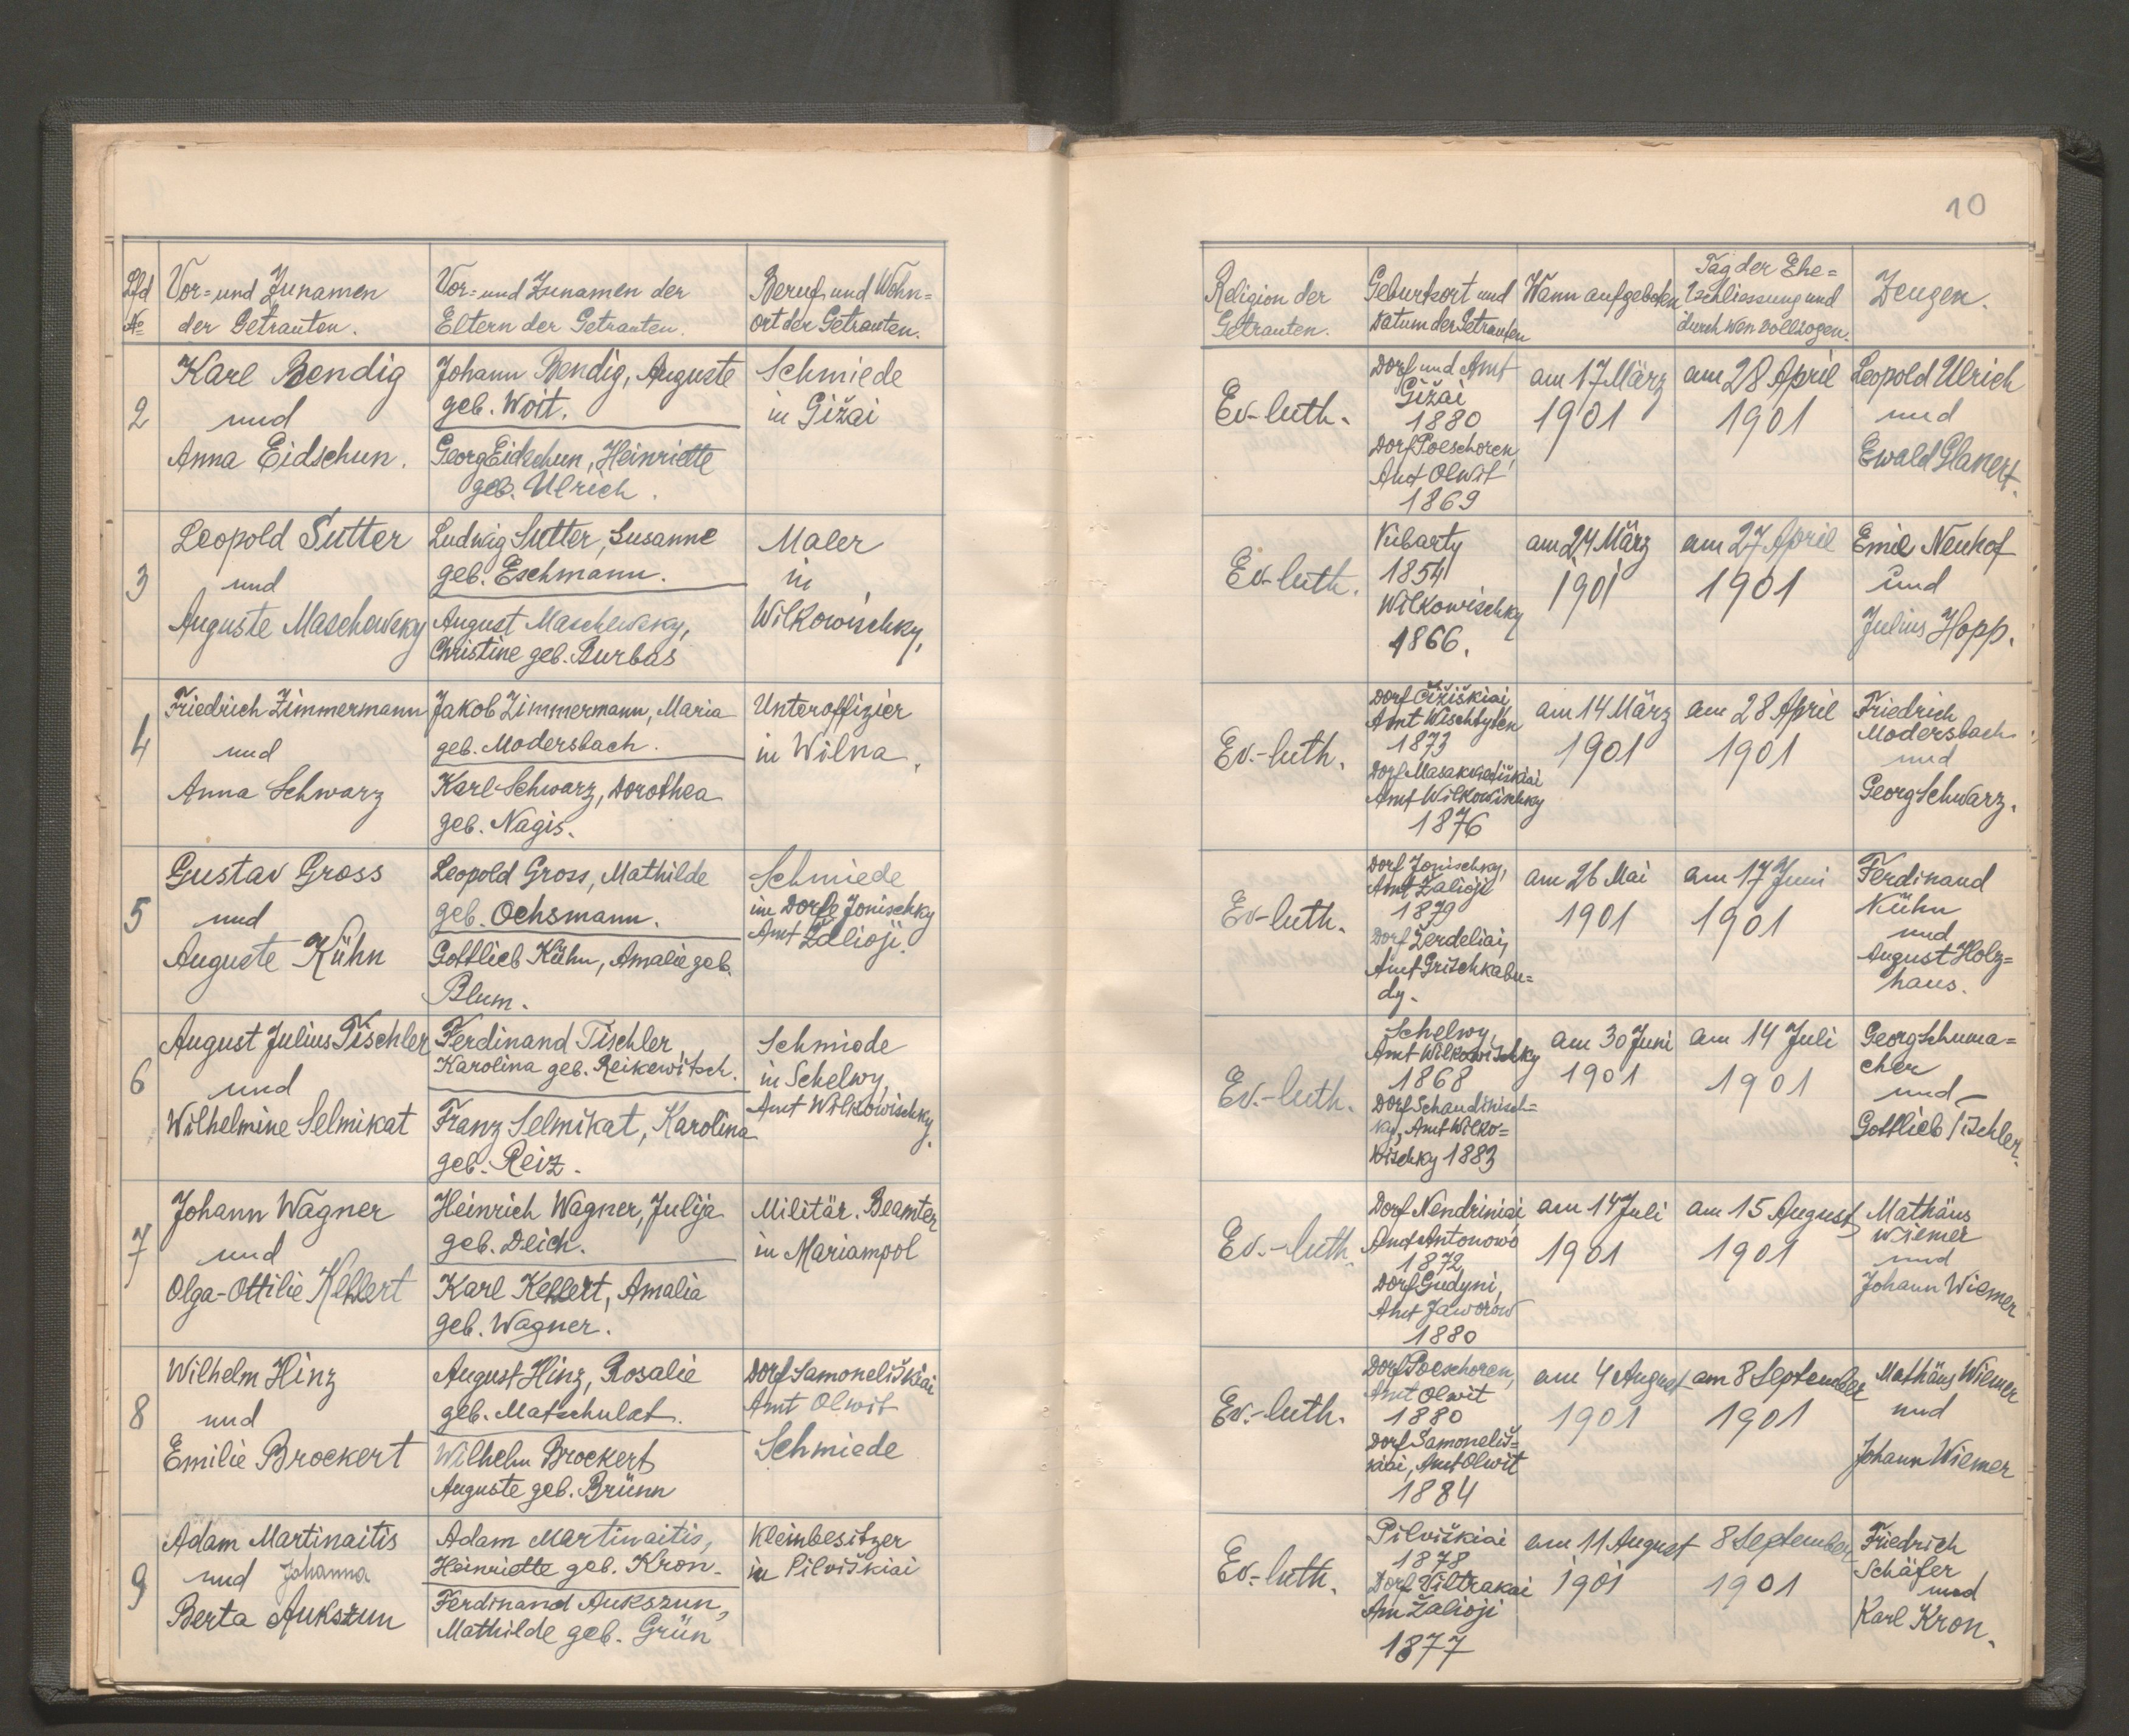 10
Lfd
№
Vor- und Zunamen
der Getrauten.
Vor- und Zunamen der
Eltern der Getrauten.
Beruf und Wohn=
ort der Getrauten.
Religion der
Getrauten.
Geburtsort und
Datum der Getrauten
Wann aufgeboten
Tag der Ehe=
schliessung und
durch wen vollzogen.
Zeugen.
2
Karl Bendig
und
Anna Eidschun.
Johann Bendig, Auguste
geb. Woit.
Georg Eidschun, Heinriette
geb. Ulrich.
Schmiede
in Gižai
Ev-luth.
Dorf und Amt
Gižai
1880
Dorf Poeschoren,
Amt Olwit
1869
am 17 März
1901
am 28 April
1901
Leopold Ulrich
und
Ewald Glanert.
3
Leopold Sutter
und
Auguste Maschewsky
Ludwig Sutter, Susanne
geb. Eschmann.
August Maschewsky,
Christine geb. Burbas
Maler
in
Wilkowischky,
Ev-luth.
Kibarty
1854
Wilkowischky
1866.
am 24 März
1901
am 27 April
1901
Emil Neuhof
und
Julius Hopp.
4
Friedrich Zimmermann
und
Anna Schwarz
Jakob Zimmermann, Maria
geb. Modersbach.
Karl Schwarz, Dorothea
geb. Nagis.
Unteroffizier
in Wilna.
Ev.-luth.
Dorf Čižiškiai,
Amt Wischtyten
1873
Dorf
Amt Wilkowischky
1876
am 14 März
1901
am 28 April
1901
Friedrich
Modersbach
und
Georg Schwarz.
5
Gustav Gross
und
Auguste Kühn
Leopold Gross, Mathilde
geb. Ochsmann.
Gottlieb Kühn, Amalie geb.
Blum.
Schmiede
im Dorfe Jonischky
Amt Žalioji.
Ev-luth.
Dorf Jonischky,
Amt Žalioji
1879
Dorf Žerdeliai,
Amt Grischkabu=
dy.
am 26 Mai
1901
am 17 Juni
1901
Ferdinand
Kühn
und
August Holz=
haus.
6
August Julius Tischler
und
Wilhelmine Selmikat
Ferdinand Tischler
Karolina geb. Reikewitsch.
Franz Selmikat, Karolina
geb. Reiz.
Schmiede
in Schelwy,
Amt Wilkowischky.
Ev.-luth.
Schelwy,
Amt Wilkowischky
1868
Dorf Schaudinisch=
ky, Amt Wilko=
wischky 1883
am 30 Juni
1901
am 14 Juli
1901
Georg Schuma=
cher
und
Gottlieb Tischler.
7
Johann Wagner
und
Olga-Ottilie Kehlert
Heinrich Wagner, Julija
geb. Deich.
Karl Kehlert, Amalia
geb. Wagner.
Militär. Beamter
in Mariampol
Ev.-luth.
Dorf Nendriniai,
Amt Antonowo
1872
Dorf Gudyni,
Amt Jaworow
1880
am 14 Juli
1901
am 15 August
1901
Mathäus
Wiemer
und
Johann Wiemer
8
Wilhelm Hinz
und
Emilie Brockert
August Hinz, Rosalie
geb. Matschulat.
Wilhelm Brockert
Auguste geb. Brünn
Dorf Samoneliškiai
Amt Olwit
Schmiede
Ev.-luth.
Dorf Poeschoren,
Amt Olwit
1880
Dorf Samoneliš=
kiai, Amt Olwit
1884
am 4 August
1901
am 8 September
1901
Mathäus Wiemer
und
Johann Wiemer
9
Adam Martinaitis
und Johanna
Berta Aukszun
Adam Martinaitis,
Heinriette geb. Kron.
Ferdinand Aukszun,
Mathilde geb. Grün
Kleinbesitzer
in Pilviškiai
Ev.-luth.
Pilviškiai
1878
Dorf Tiltrakai
Am Žalioji
1877
am 11 August
1901
8 September
1901
Friedrich
Schäfer
und
Karl Kron.